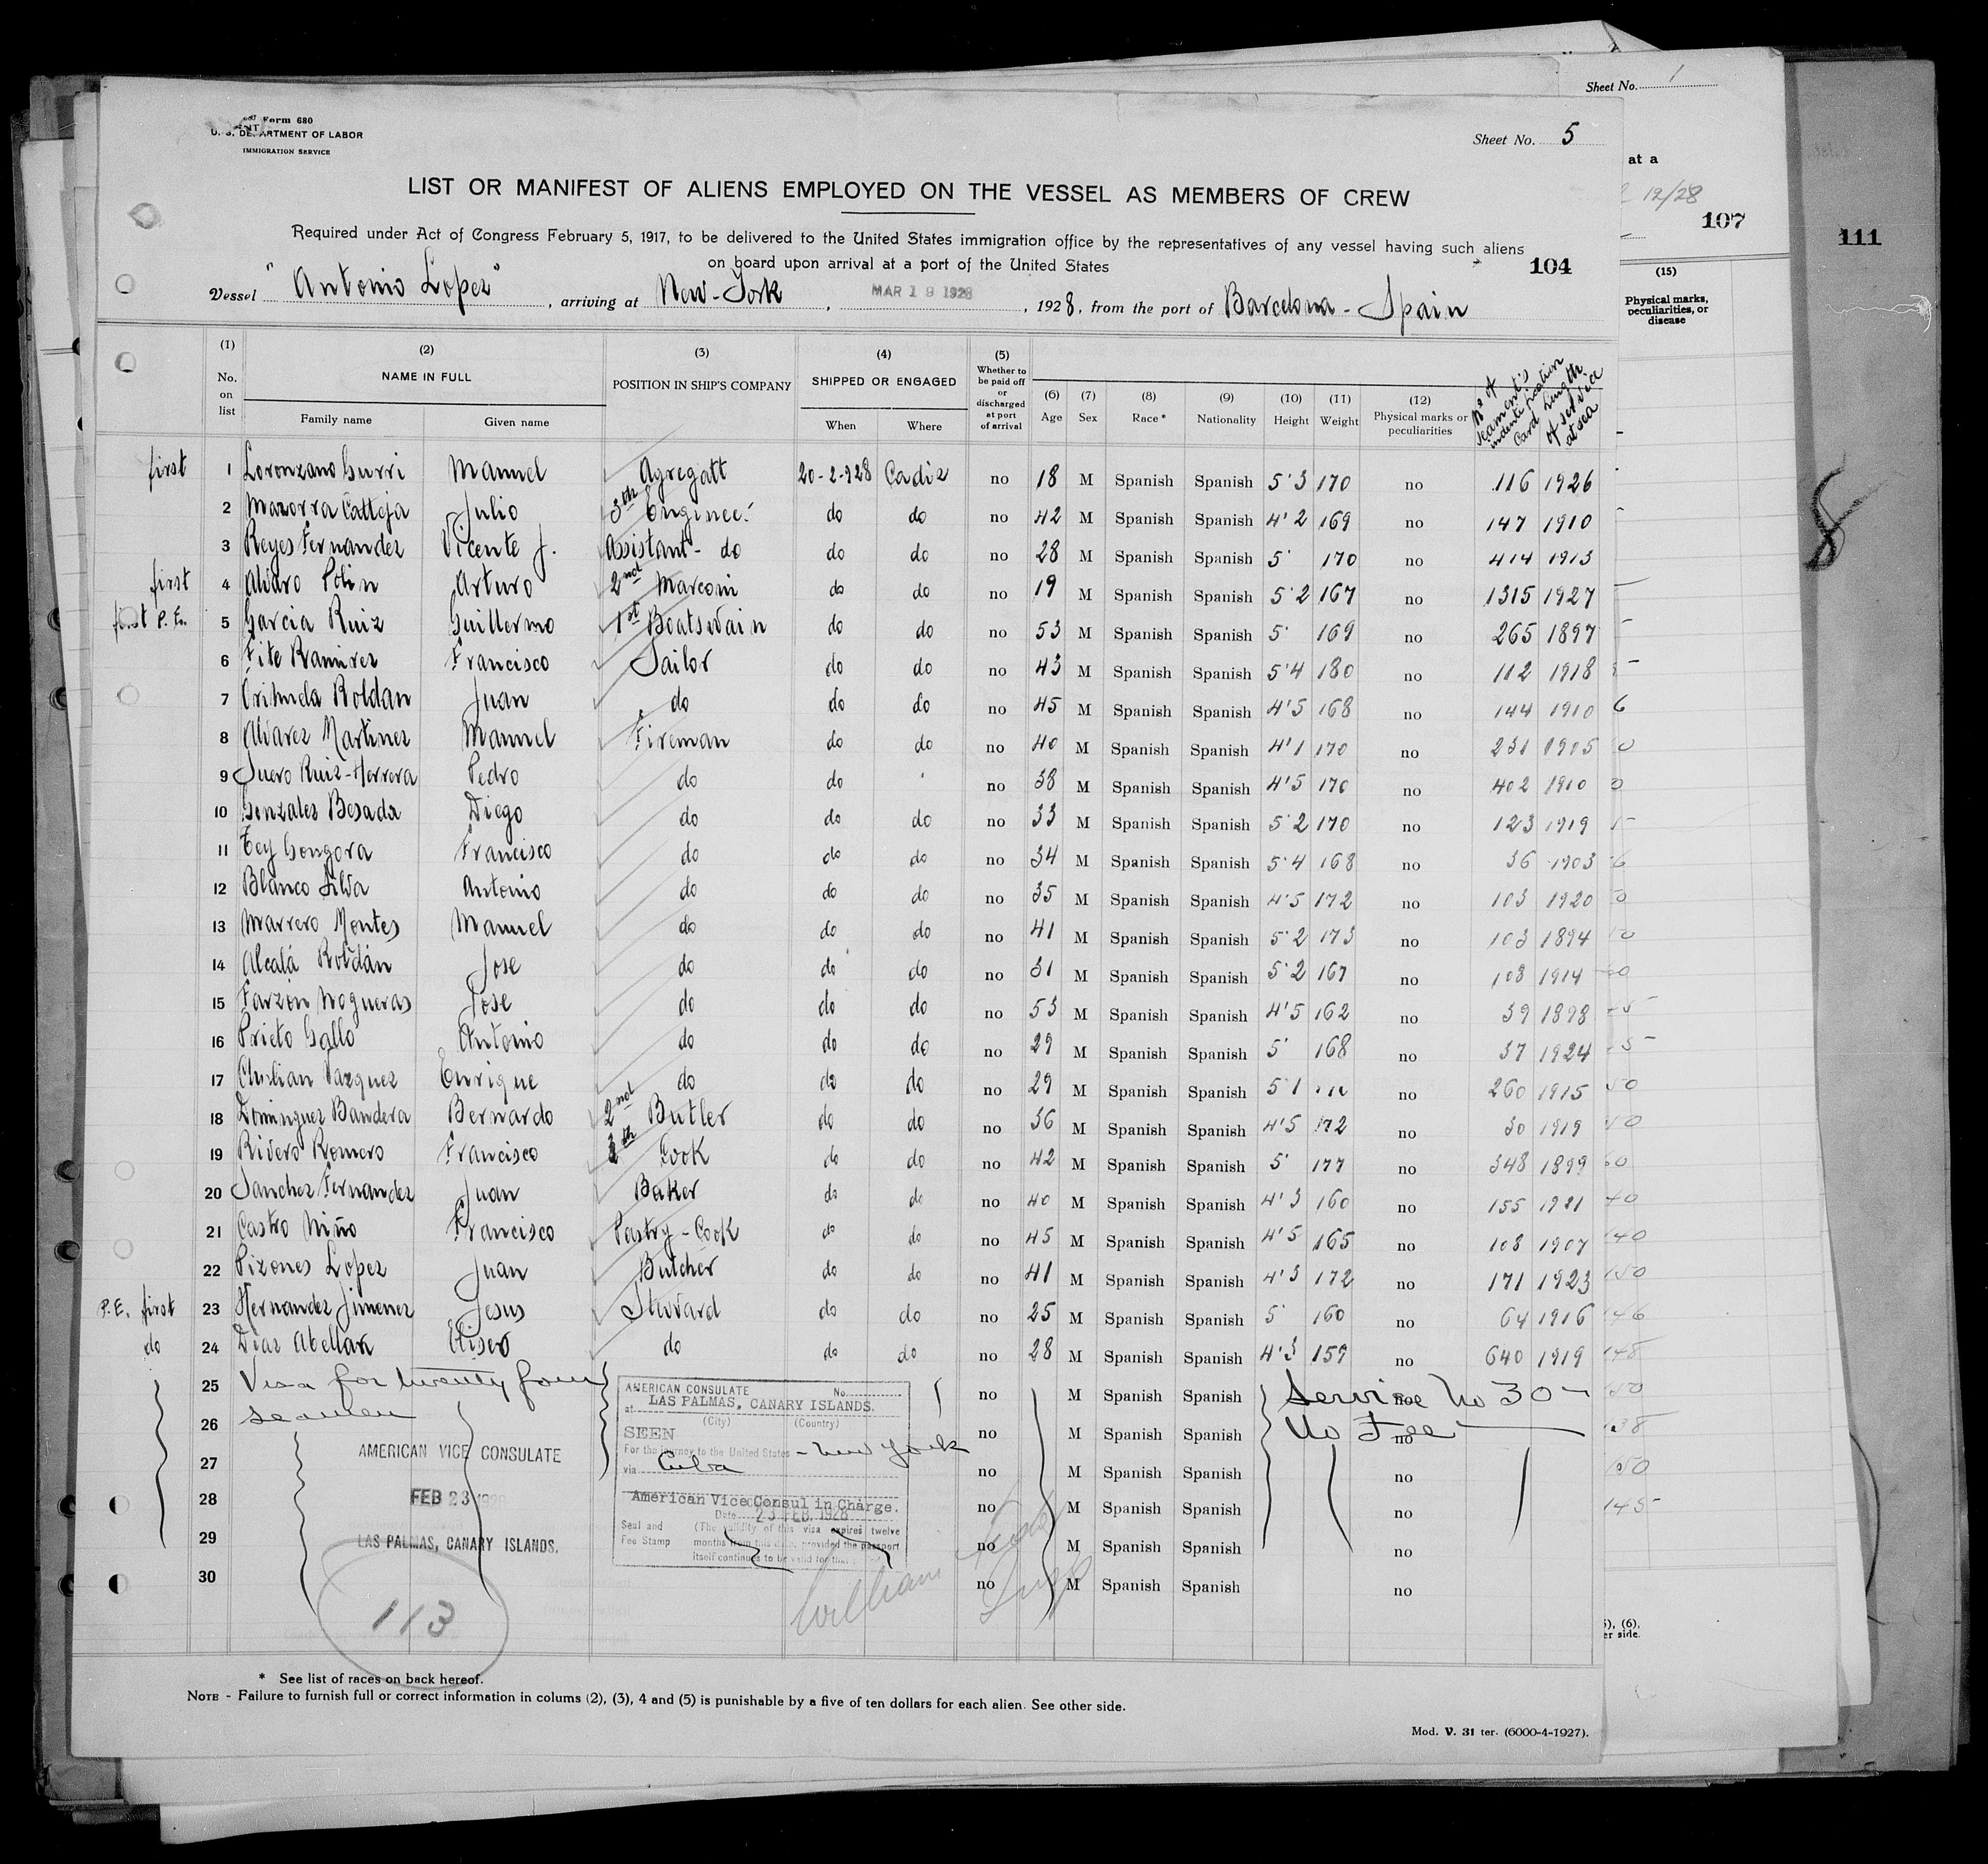 Form 680
U. S. DEPARTMENT OF LABOR
IMMIGRATION SERVICE
Sheet No. 5
Sheet No. 1
LIST OR MANIFEST OF ALIENS EMPLOYED ON THE VESSEL AS MEMBERS OF CREW
at a
12/28
107
111
Required under Act of Congress February 5, 1917, to be delivered to the United States immigration office by the representatives of any vessel having such aliens
on board upon arrival at a port of the United States
104
Vessel "Antonio Lopez", arriving at New-York, MAR 19 1928, 1928, from the port of Barcelona - Spain
(15)
Physical marks, peculiarities, or disease
(1) No. on list (2) NAME IN FULL Family name Given name (3) POSITION IN SHIP'S COMPANY (4) SHIPPED OR ENGAGED When Where (5) Whether to be paid off or discharged at port of arrival (6) Age (7) Sex (8) Race* (9) Nationality (10) Height (11) Weight (12) Physical marks or peculiarities Nº of seament's indentification Card length of service at sea
first 1 Loronzano Gurri Manuel Agregatt 20-2-928 Cadiz no 18 M Spanish Spanish 5'3 170 no 116 1926
2 Mazorra Catteja Julio 3th Enginee. do do no 42 M Spanish Spanish 4'2 169 no 147 1910
3 Reyes Fernandez Vicente J. Assistant- do do do no 28 M Spanish Spanish 5' 170 no 414 1913
first 4 Alvaro Polin Arturo 2nd Marconi do do no 19 M Spanish Spanish 5'2 167 no 1315 1927
first P.E. 5 Garcia Ruiz Guillermo 1st Boatswain do do no 53 M Spanish Spanish 5' 169 no 265 1897
6 Fite Ramirez Francisco Sailor do do no 43 M Spanish Spanish 5'4 180 no 112 1918
7 Orihuela Roldan Juan do do do no 45 M Spanish Spanish 4'5 168 no 144 1910
8 Alvarez Martinez Manuel Fireman do do no 40 M Spanish Spanish 4'1 170 no 231 1905
9 Suero Ruiz-Herrera Pedro do do no 38 M Spanish Spanish 4'5 170 no 402 1910
10 Gonzalez Besada Diego do do do no 33 M Spanish Spanish 5'2 170 no 123 1919
11 Tey Gongora Francisco do do do no 34 M Spanish Spanish 5'4 168 no 36 1903
12 Blanco Silva Antonio do do do no 35 M Spanish Spanish 4'5 172 no 103 1920
13 Marrero Montes Manuel do do do no 41 M Spanish Spanish 5'2 173 no 103 1894
14 Alcalá Roldán Jose do do do no 31 M Spanish Spanish 5'2 167 no 108 1914
15 Farzón Nogueras Jose do do do no 53 M Spanish Spanish 4'5 162 no 39 1898
16 Prieto Gallo Antonio do do do no 29 M Spanish Spanish 5' 168 no 37 1924
17 Chulian Vazquez Enrique do do do no 29 M Spanish Spanish 5'1 no 260 1915
18 Dominguez Bandera Bernardo 2nd Butler do do no 36 M Spanish Spanish 4'5 172 no 30 1919
19 Rivero Romero Francisco th Cook do do no 42 M Spanish Spanish 5' 177 no 348 1899
20 Sanchez Fernandez Juan Baker do do no 40 M Spanish Spanish 4'3 160 no 155 1921
21 Castro Niño Francisco Pastry-Cook do do no 45 M Spanish Spanish 4'5 165 no 108 1907
22 Pizones Lopez Juan Butcher do do no 41 M Spanish Spanish 4'3 172 no 171 1923
P.E. first 23 Hernandez Jimenez Jesus Steward do do no 25 M Spanish Spanish 5' 160 no 64 1916
do 24 Diaz Abellan Eliseo do do do no 28 M Spanish Spanish 4'3 159 no 640 1919
25 Visa for twenty four no M Spanish Spanish Service No 30 -
26 seamen no M Spanish Spanish No Fee no
27 no M Spanish Spanish no
28 no M Spanish Spanish no
29 no M Spanish Spanish no
30 no M Spanish Spanish no
AMERICAN VICE CONSULATE
FEB 23 192
LAS PALMAS, CANARY ISLANDS.
AMERICAN CONSULATE No.
at LAS PALMAS, CANARY ISLANDS.
(City) (Country)
SEEN
For the journey to the United States - New York
via Cuba
American Vice Consul in Charge.
Date 23 FEB. 1928
Seal and Fee Stamp
(The validity of this visa expires twelve
months from this date, provided the passport
itself continues to be valid for that
William
113
8
5), (6),
er side.
* See list of races on back hereof.
NOTE - Failure to furnish full or correct information in colums (2), (3), 4 and (5) is punishable by a five of ten dollars for each alien. See other side.
Mod. V. 31 ter. (6000-4-1927).